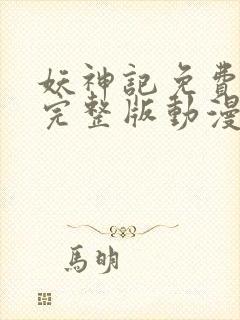 妖神記免費
完整版動漫
馬明